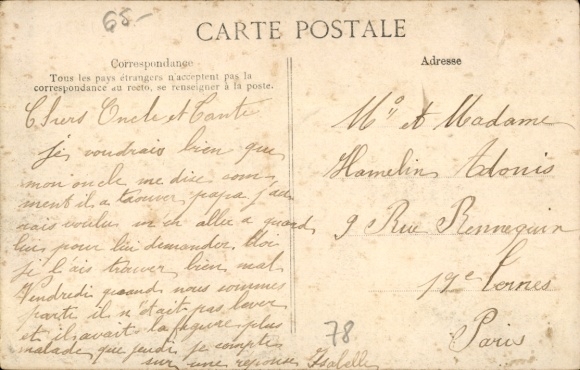 65-
CARTE POSTALE
Correspondance
Tous les pays étrangers n'acceptent pas la
correspondance au recto, se renseigner à la poste.
Chers Oncle et Tante
je voudrais bien que
mon oncle me dise com-
ment il a trouver papa j'au
rais voulu m'en aller a quand
lui pour lui demander. Moi
je l'ais trouver bien mal
Vendredi quand nous sommes
partie il n'était pas lever
et il avait la figure plus
malade que jeudi je compte
sur une reponse Isabelle
Adresse
Mr et Madame
Hamelin Adonis
9 Rue Rennequin
17e Ternes
Paris
78